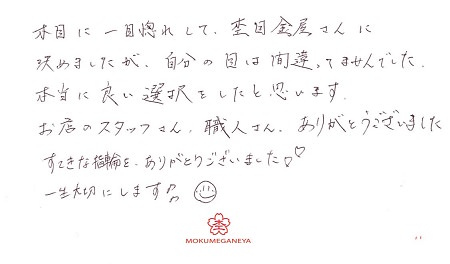 木目に一目惚れして、杢目金屋さんに
決めましたが、自分の目は間違ってませんでした。
本当に良い選択をしたと思います。
お店のスタッフさん、職人さん、ありがとうございました
すてきな指輪を、ありがとうございました♡♡
一生大切にします♪
MOKUMEGANEYA